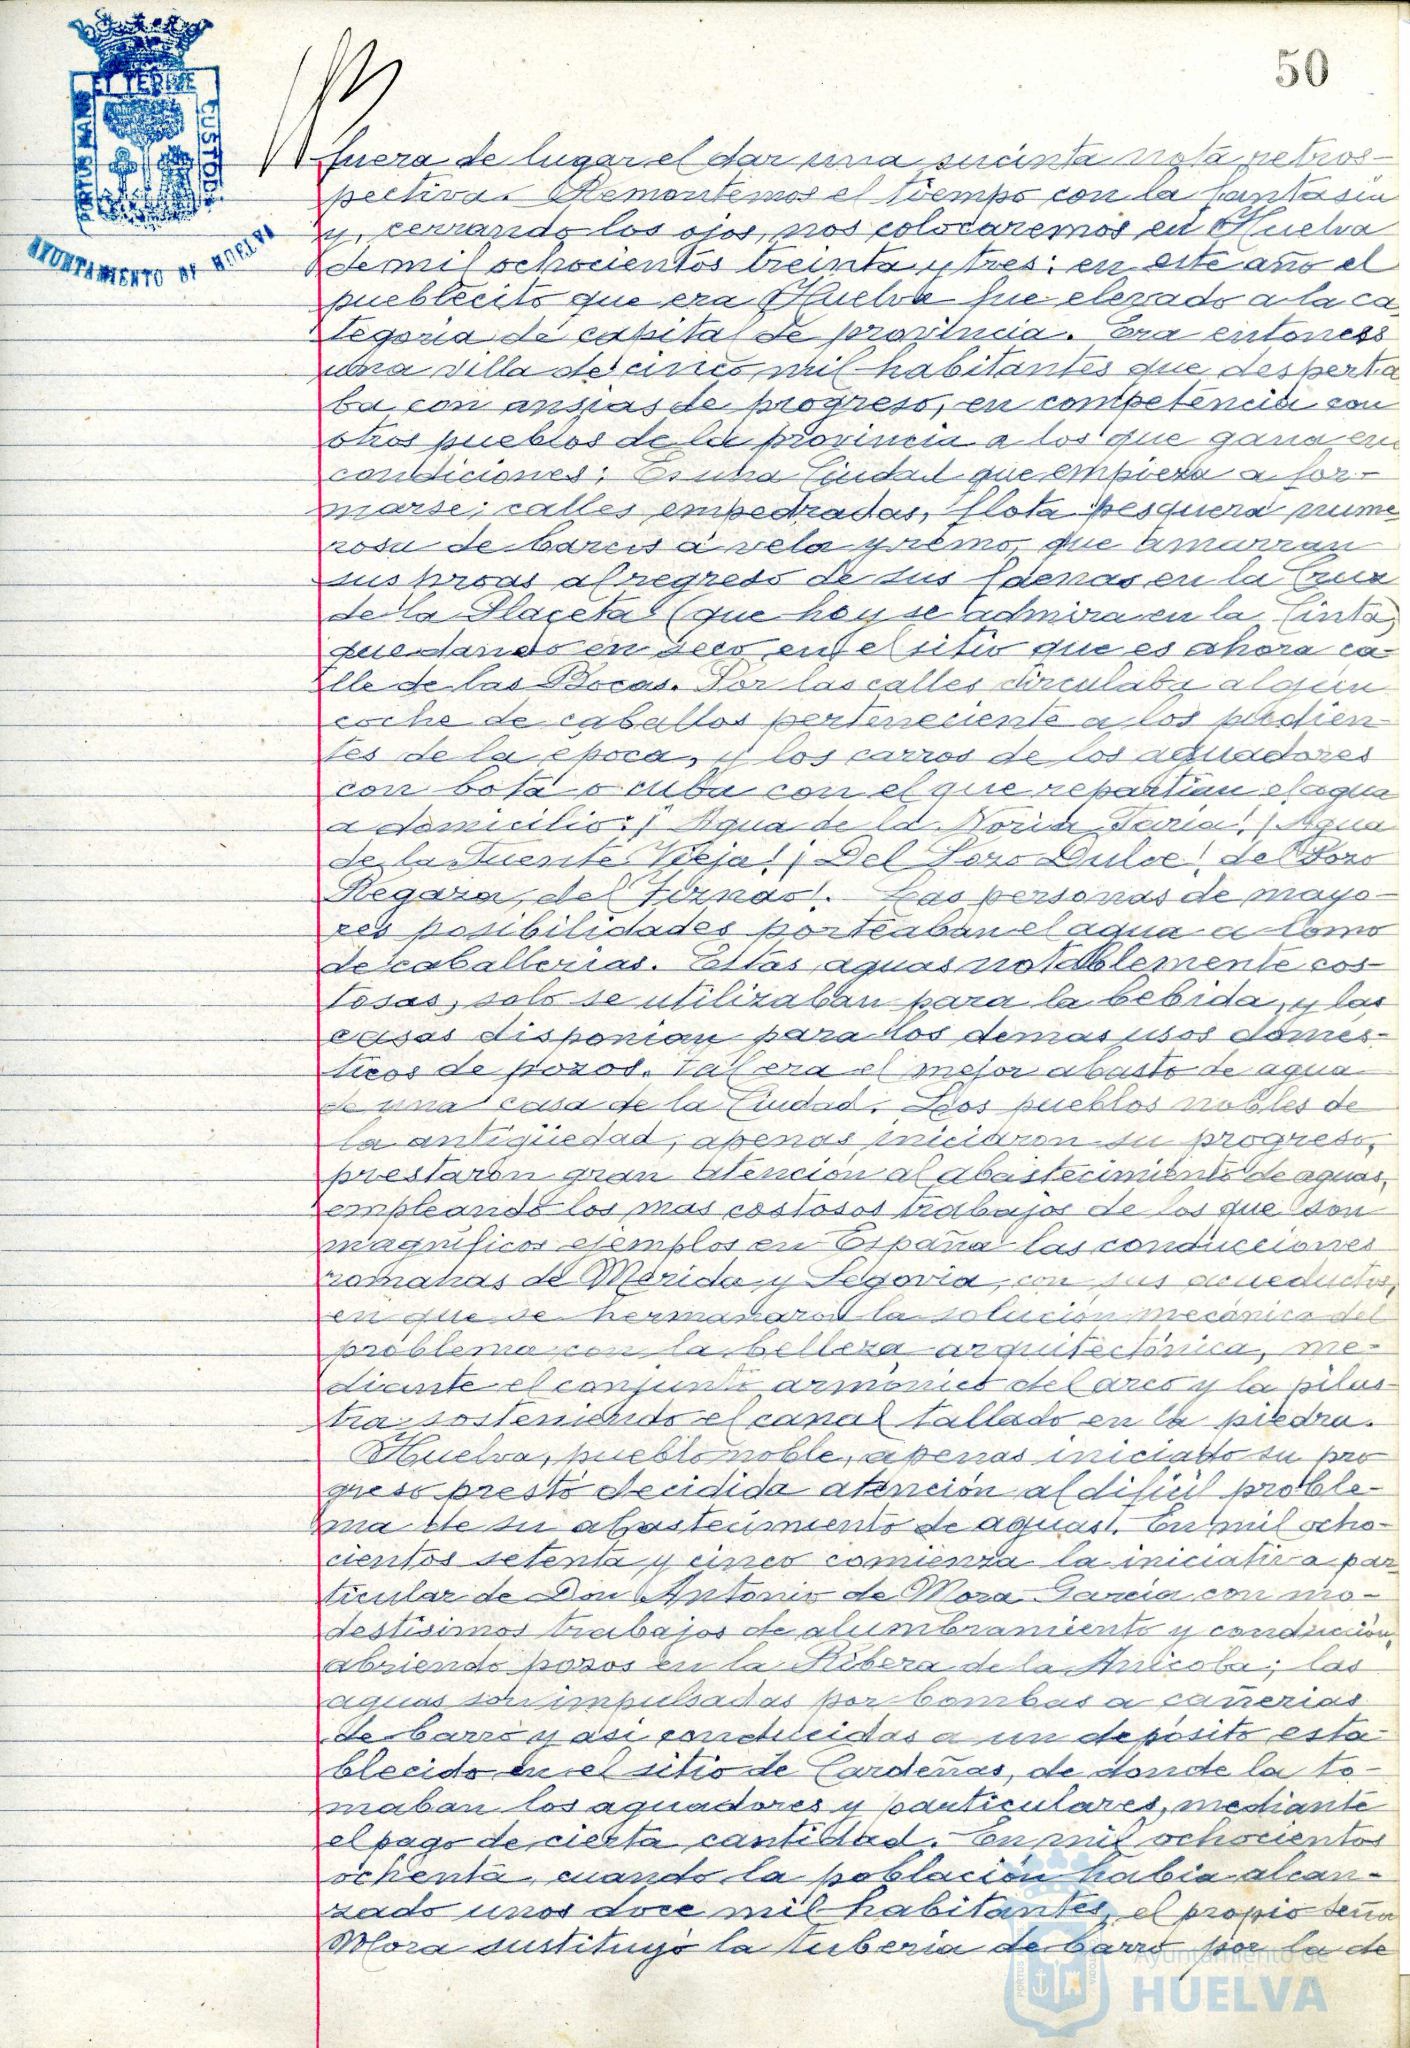 50
PORTUS MARIS ET TERRAE CUSTODIA
AYUNTAMIENTO DE HUELVA
fuera de lugar el dar una sucinta nota retros-
pectiva. Remontemos el tiempo con la fantasia
y, cerrando los ojos, nos colocaremos en Huelva
de mil ochocientos treinta y tres: en este año el
pueblecito que era Huelva fue elevado a la ca
tegoria de capital de provincia. Era entonces
una villa de cinco mil habitantes que desperta
ba con ansias de progreso, en competencia con
otros pueblos de la provincia a los que gana en
condiciones; Es una Ciudad que empieza a for-
marse; calles empedradas, flota pesquera nume
rosa de barcos a vela y remo, que amarran
sus proas al regreso de sus faenas en la Cruz
de la Placeta (que hoy se admira en la Cinta)
quedando en seco en el sitio que es ahora ca-
lle de las Bocas. Por las calles circulaba algun
coche de caballos perteneciente a los pudien-
tes de la época, y los carros de los aguadores
con bota o cuba con el que repartian el agua
a domicilio: ¡Agua de la Noria Feria! ¡Agua
de la Fuente Vieja! ¡Del Pozo Dulce! del Pozo
Regaza, del Tiznao!. Las personas de mayo-
res posibilidades porteaban el agua a lomo
de caballerias. Estas aguas notablemente cos-
tosas, solo se utilizaban para la bebida, y las
casas disponian para los demas usos domes-
ticos de pozos. Tal era el mejor abasto de agua
de una casa de la Ciudad. Los pueblos nobles de
la antigüedad, apenas iniciaron su progreso,
prestaron gran atención al abastecimiento de aguas,
empleando los mas costosos trabajos de los que son
magníficos ejemplos en España las conducciones
romanas de Merida y Segovia, con sus acueductos,
en que se hermanaron la solución mecánica del
problema con la belleza arquitectónica, me-
diante el conjunto armónico del arco y la pilas
tra sosteniendo el canal tallado en la piedra.
Huelva, pueblo noble, apenas iniciado su pro
greso prestó decidida atención al dificil proble-
ma de su abastecimiento de aguas. En mil ocho-
cientos setenta y cinco comienza la iniciativa par
ticular de Don Antonio de Mora Garcia con mo-
destisimos trabajos de alumbramiento y conducción,
abriendo pozos en la Ribera de la Anicoba; las
aguas son impulsadas por bombas a cañerias
de barro y asi conducidas a un depósito esta-
blecido en el sitio de Cardeñas, de donde la to-
maban los aguadores y particulares, mediante
el pago de cierta cantidad. En mil ochocientos
ochenta, cuando la población habia alcan-
zado unos doce mil habitantes, el propio señor
Mora sustituyó la tuberia de barro por la de
Ayuntamiento de
HUELVA